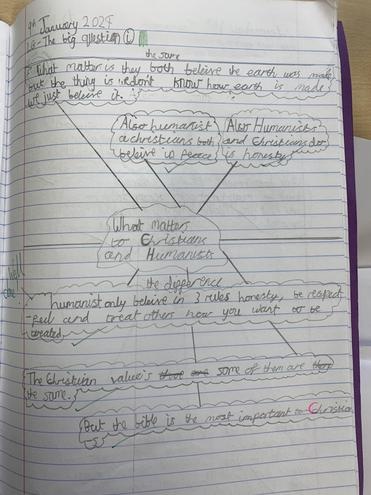 9th January 2024
LO - The big question ①
the same
What matter is they both beleive the earth was made
but the thing is we don't know how earth is made
we just beleive it.
Also humanist
a christians both
beleive in peace
Also Humanists
and Christians do
is honesty
What matters
to Christians
and Humanists
the difference
humanist only beleive in 3 rules honesty, be respect
-ful and treat others how you want to be
treated
The Christian value's some of them are
the same.
But the bible is the most important to Christian
-s